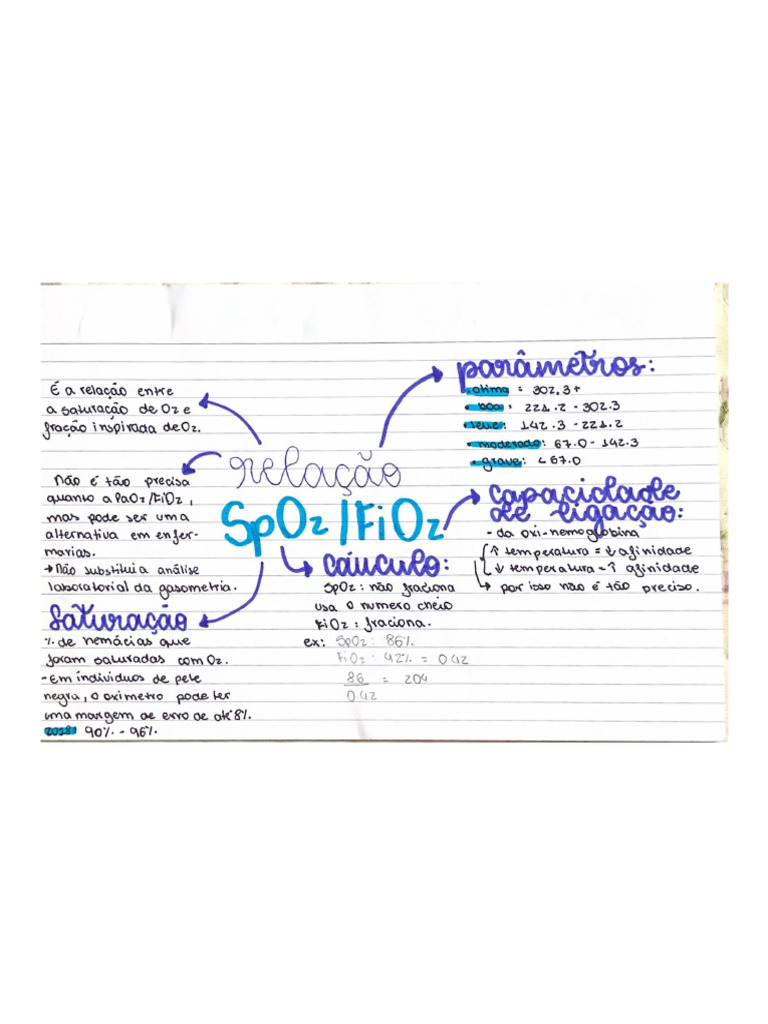 relação
SpO2/FiO2
É a relação entre
a saturação de O2 e
fração inspirada de O2.
Não é tão precisa
quanto a PaO2/FiO2,
mas pode ser uma
alternativa em enfer-
marias.
→ Não substitui a análise
laboratorial da gasometria.
saturação
% de hemácias que
foram saturadas com O2.
- Em indivíduos de pele
negra, o oxímetro pode ter
uma margem de erro de até 8%.
2018: 90% - 96%
cáuculo:
SpO2: não fraciona
usa o numero cheio
FiO2: fraciona.
ex: SpO2: 86%
FiO2: 42% = 0.42
86 = 204
0.42
parâmetros:
• otima = 302.3+
• boa: 221.2 - 302.3
• leve: 142.3 - 221.2
• moderado: 67.0 - 142.3
• grave: < 67.0
capacidade
de ligação:
- da oxi-hemoglobina
↑ temperatura = ↓ afinidade
↓ temperatura = ↑ afinidade
↳ por isso não é tão preciso.